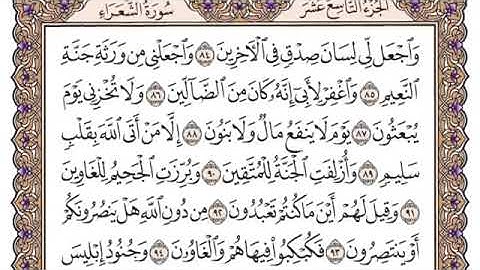 الجزء التاسع عشر
سورة الشعراء
وَاجْعَل لِّي لِسَانَ صِدْقٍ فِي الْآخِرِينَ ٨٤ وَاجْعَلْنِي مِن وَرَثَةِ جَنَّةِ
النَّعِيمِ ٨٥ وَاغْفِرْ لِأَبِي إِنَّهُ كَانَ مِنَ الضَّالِّينَ ٨٦ وَلَا تُخْزِنِي يَوْمَ
يُبْعَثُونَ ٨٧ يَوْمَ لَا يَنفَعُ مَالٌ وَلَا بَنُونَ ٨٨ إِلَّا مَنْ أَتَى اللَّهَ بِقَلْبٍ
سَلِيمٍ ٨٩ وَأُزْلِفَتِ الْجَنَّةُ لِلْمُتَّقِينَ ٩٠ وَبُرِّزَتِ الْجَحِيمُ لِلْغَاوِينَ
٩١ وَقِيلَ لَهُمْ أَيْنَ مَا كُنتُمْ تَعْبُدُونَ ٩٢ مِن دُونِ اللَّهِ هَلْ يَنصُرُونَكُمْ
أَوْ يَنتَصِرُونَ ٩٣ فَكُبْكِبُوا فِيهَا هُمْ وَالْغَاوُونَ ٩٤ وَجُنُودُ إِبْلِيسَ